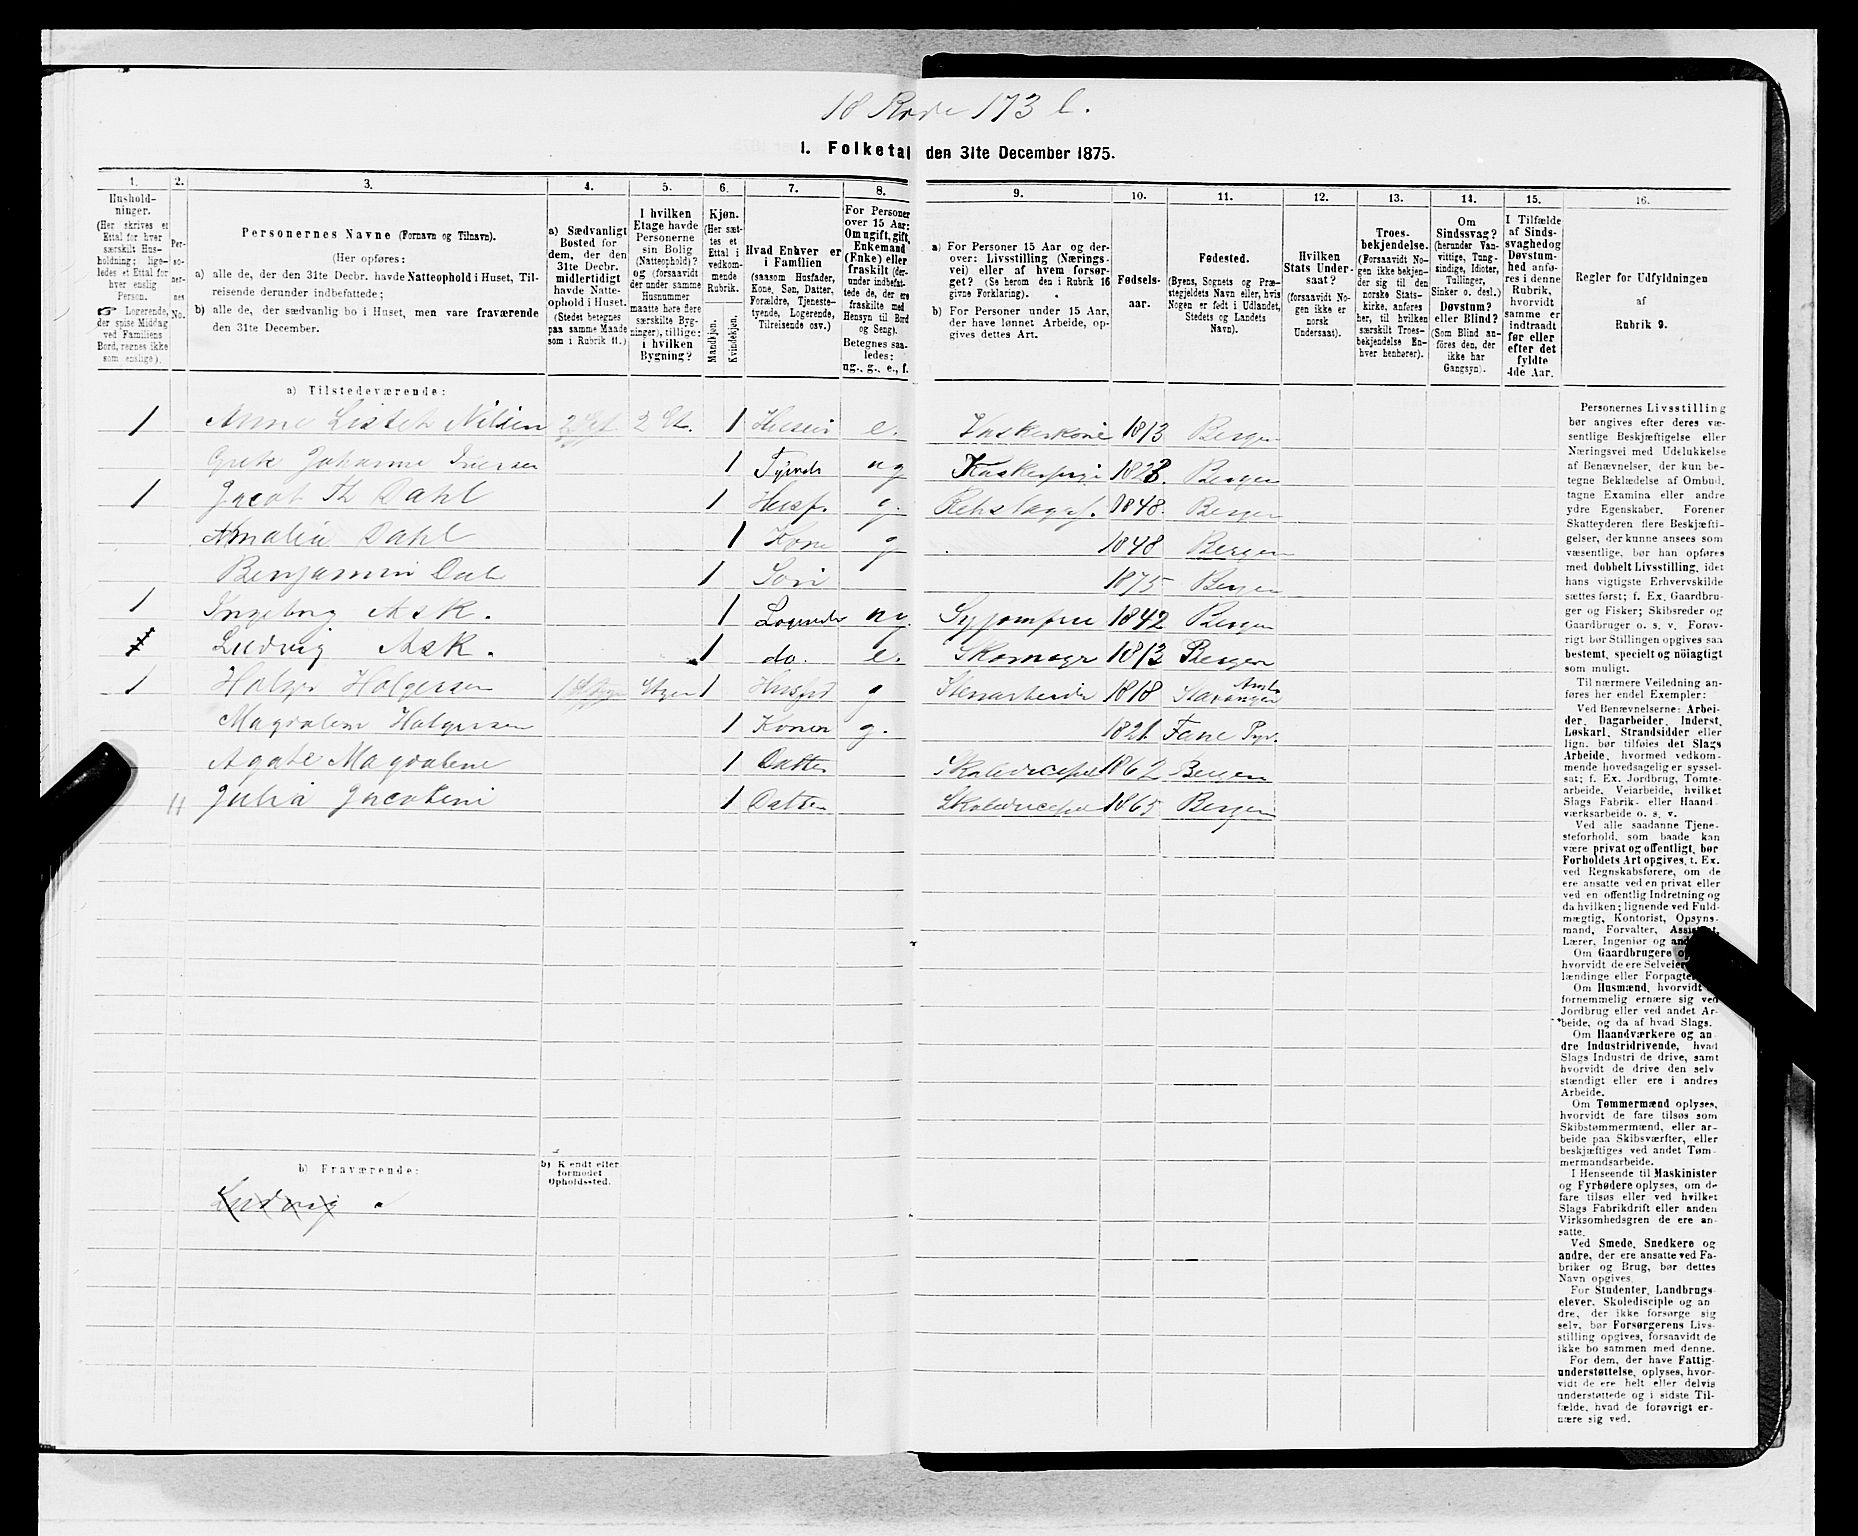 18 Rode 173 b.
1. Folketal den 31te December 1875.
1. 2. 3. 4. 5. 6. 7. 8. 9. 10. 11. 12. 13. 14. 15. 16.
Hushold-
ninger.
(Her skrives et
Ettal for hver
særskilt Hus-
holdning; lige-
ledes et Ettal for
hver enslig
Person.
☞ Logerende,
der spise Middag
ved Familiens
Bord, regnes ikke
som enslige).
Per-
so-
ner-
nes
No.
Personernes Navne (Fornavn og Tilnavn).
(Her opføres:
a) alle de, der den 31te Decbr. havde Natteophold i Huset, Til-
reisende derunder indbefattede;
b) alle de, der sædvanlig bo i Huset, men vare fraværende
den 31te December.
a) Sædvanligt
Bosted for
dem, der den
31te Decbr.
midlertidigt
havde Natte-
ophold i Huset.
(Stedet betegnes
paa samme Maade
som i Rubrik 11.)
I hvilken
Etage havde
Personerne
sin Bolig
(Natteophold)?
og (forsaavidt
der under samme
Husnummer
maatte høre flere
særskilte Byg-
ninger), tillige:
i hvilken
Bygning?
Kjøn.
(Her sæt-
tes et
Ettal i
vedkom-
mende
Rubrik.
Mandkjøn.
Kvindekjøn.
Hvad Enhver er
i Familien
(saasom Husfader,
Kone, Søn, Datter,
Forældre, Tjeneste-
tyende, Logerende,
Tilreisende osv.)
For Personer
over 15 Aar:
Om ugift, gift,
Enkemand
(Enke) eller
fraskilt (der-
under indbefat-
tede de, der ere
fraskilte med
Hensyn til Bord
og Seng).
Betegnes saa-
ledes:
ug., g., e., f.
a) For Personer 15 Aar og der-
over: Livsstilling (Nærings-
vei) eller af hvem forsør-
get? (Se herom den i Rubrik 16
givne Forklaring).
b) For Personer under 15 Aar,
der have lønnet Arbeide, op-
gives dettes Art.
Fødsels-
aar.
Fødested.
(Byens, Sognets og Præ-
stegjeldets Navn eller, hvis
Nogen er født i Udlandet,
Stedets og Landets
Navn).
Hvilken
Stats Under-
saat?
(forsaavidt No-
gen ikke er
norsk
Undersaat).
Troes-
bekjendelse.
(Forsaavidt No-
gen ikke bekjen-
der sig til den
norske Stats-
kirke, anføres
her, til hvilken
særskilt Troes-
bekjendelse En-
hver henhører).
Om
Sindssvag?
(herunder Van-
vittige, Tung-
sindige, Idioter,
Tullinger,
Sinker o. desl.)
Døvstum?
eller Blind?
(Som Blind an-
føres den, der
ikke har
Gangsyn).
I Tilfælde
af Sinds-
svaghed og
Døvstum-
hed anfø-
res i denne
Rubrik,
hvorvidt
samme er
indtraadt
før eller
efter det
fyldte
4de Aar.
Regler for Udfyldningen
af
Rubrik 9.
a) Tilstedeværende:
1 Anne Lisbeth Nilsen 2 Et. 1 e. Vaskerkone 1813 Bergen
Grete Johanne Iversen 1 ug 1823 Bergen
1 Jacob Th Dahl 1 Husf. g. 1848 Bergen
Amalia Dahl 1 Kone g 1848 Bergen
Benjamin Dahl 1 Søn 1875 Bergen
1 Ingeborg Ask. 1 Logerende ug. Syjomfru 1842 Bergen
Ludvig Ask. 1 do. e. Skomager 1813 Bergen
1 Holger Holgersen 1 Husfad g Stenarbeide 1818 Stavanger Amt
Magdalene Holgersen 1 Konen g. 1821 Fane
Agate Magdalene 1 Datter Skolediscipel 1862 Bergen
11 Julia Jacobine 1 Datter Skolediscipel 1865 Bergen
b) Fraværende:
b) Kendt eller
formodet
Opholdssted.
Ludvig
Personernes Livsstilling
bør angives efter deres væ-
sentlige Beskjæftigelse eller
Næringsvei med Udelukkelse
af Benævnelser, der kun be-
tegne Beklædelse af Ombud,
tagne Examina eller andre
ydre Egenskaber. Forener
Skatteyderen flere Beskjæfti-
gelser, der kunne ansees som
væsentlige, bør han opføres
med dobbelt Livsstilling, idet
hans vigtigste Erhvervskilde
sættes først; f. Ex. Gaardbru-
ger og Fisker; Skibsreder og
Gaardbruger o. s. v. Forøv-
rigt bør Stillingen opgives saa
bestemt, specielt og nöiagtigt
som muligt.
Til nærmere Veiledning an-
føres her endel Exempler:
Ved Benævnelserne: Arbei-
der, Dagarbeider, Inderst,
Løskarl, Strandsidder eller
lign. bør tilføies det Slags
Arbeide, hvormed vedkom-
mende hovedsagelig er syssel-
sat; f. Ex. Jordbrug, Tomte-
arbeide, Veiarbeide, hvilket
Slags Fabrik- eller Haand-
værksarbeide o. s. v.
Ved alle saadanne Tjene-
steforhold, som baade kan
være privat og offentligt, bør
Forholdets Art opgives, t. Ex.
ved Regnskabsførere, om de
ere ansatte ved en privat eller
ved en offentlig Indretning og
da hvilken; lignende ved Fuld-
mægtig, Kontorist, Opsyns-
mand, Forvalter,
Lærer, Ingeniør og
Om Gaardbrugere
hvorvidt de ere Selveiere,
lændinge eller
Om Husmænd, hvorvidt
fornemmelig ernære sig ved
Jordbrug eller ved andet Ar-
beide, og da af hvad Slags.
Om Haandværkere og an-
dre Industridrivende, hvad
Slags Industri de drive, samt
hvorvidt de drive den selv-
stændigt eller ere i andres
Arbeide.
Om Tømmermænd oplyses,
hvorvidt de fare tilsøs som
Skibstømmermænd, eller ar-
beide paa Skibsværfter, eller
beskjæftiges ved andet Tøm-
mermandsarbeide.
I Henseende til Maskinister
og Fyrbødere oplyses, om de
fare tilsøs eller ved hvilket
Slags Fabrikdrift eller anden
Virksomhedsgren de ere an-
satte.
Ved Smede, Snedkere og
andre, der ere ansatte ved Fa-
briker og Brug, bør dettes
Navn opgives.
For Studenter, Landbrugs-
elever, Skoledisciple og an-
dre, der ikke forsørge sig
selv, bør Forsørgerens Livs-
stilling opgives, forsaavidt de
ikke bo sammen med denne.
For dem, der have Fattig-
understøttelse, oplyses, hvor-
vidt de ere helt eller delvis
understøttede og i sidste Til-
fælde, hvad de forøvrigt er-
nære sig ved.